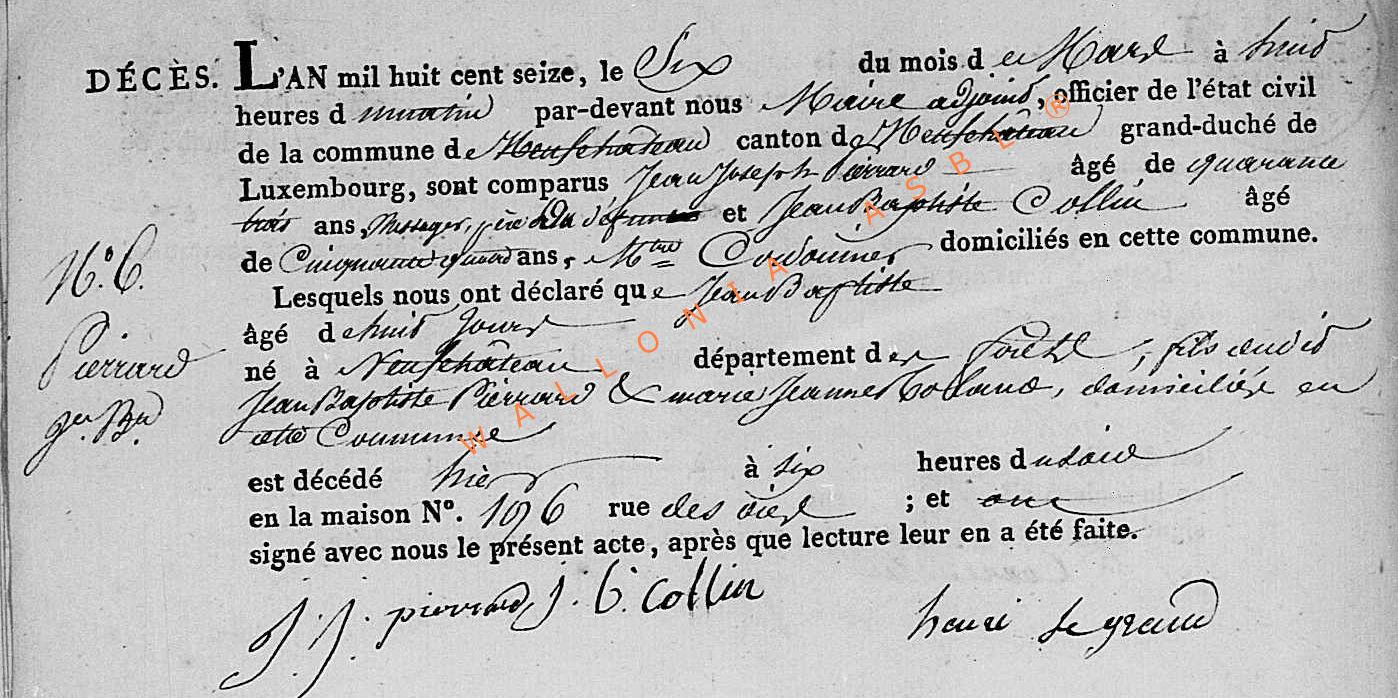 DÉCÈS. L'AN mil huit cent seize, le Six du mois de Mars à huit
heures du matin par-devant nous Maire adjoint, officier de l'état civil
de la commune de Neufchâteau canton de Neufchâteau grand-duché de
Luxembourg, sont comparus Jean Joseph Pierrard âgé de quarante
trois ans, Messager, père du défunt et Jean Baptiste Collin âgé
de Cinquante quatre ans, Mtre Cordonnier domiciliés en cette commune.
N.° 6.
Lesquels nous ont déclaré que Jean Baptiste
âgé de huit jours
Pierrard
né à Neufchâteau département des forêts, fils audit
Jean Baptiste Pierrard & marie Jeanne, domiciliés en
jn. Bte.
cette Commune
est décédé hier à six heures du soir
en la maison N°. 196 rue des ; et ont
signé avec nous le présent acte, après que lecture leur en a été faite.
J. J. pierrard J. B. Collin
henri Legrand
WALLONIA ASBL ®